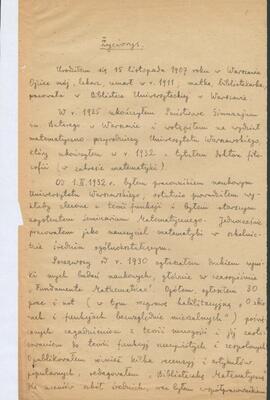 Życiorys.
Urodziłem się 15 listopada 1907 roku w Warszawie
Ojciec mój, lekarz, umarł w r. 1911, matka, bibliotekarka,
pracowała w Bibliotece Uniwersyteckiej w Warszawie.
W r. 1925 ukończyłem Państwowe Gimnazjum
im. Batorego w Warszawie i wstąpiłem na wydział
matematyczno-przyrodniczy Uniwersytetu Warszawskiego,
który ukończyłem w r. 1932 z tytułem doktora filo-
zofii (w zakresie matematyki).
Od 1.IX.1932 r. byłem pracownikiem naukowym
Uniwersytetu Warszawskiego, ostatnio prowadziłem wy-
kłady zlecone z teorii funkcji i byłem starszym
asystentem seminarium Matematycznego. Jednocześnie
pracowałem jako nauczyciel matematyki w szkolnic-
twie średnim ogólnokształcącym.
Począwszy od r. 1930 ogłaszałem drukiem wyni-
ki mych badań naukowych, głównie w czasopiśmie
„Fundamenta Mathematicae". Ogółem ogłosiłem 30
prac i not (w tym rozprawę habilitacyjną „O zbio-
rach i funkcjach bezwzględnie mierzalnych") poświę-
conych zagadnieniom z teorii mnogości i jej zasto-
sowaniom do teorii funkcji rzeczywistych i zespolonych.
Opublikowałem również kilka recenzji i artykułów
popularnych, redagowałem „Biblioteczkę Matematyczną"
dla uczniów szkół średnich, oraz byłem współpracownikiem